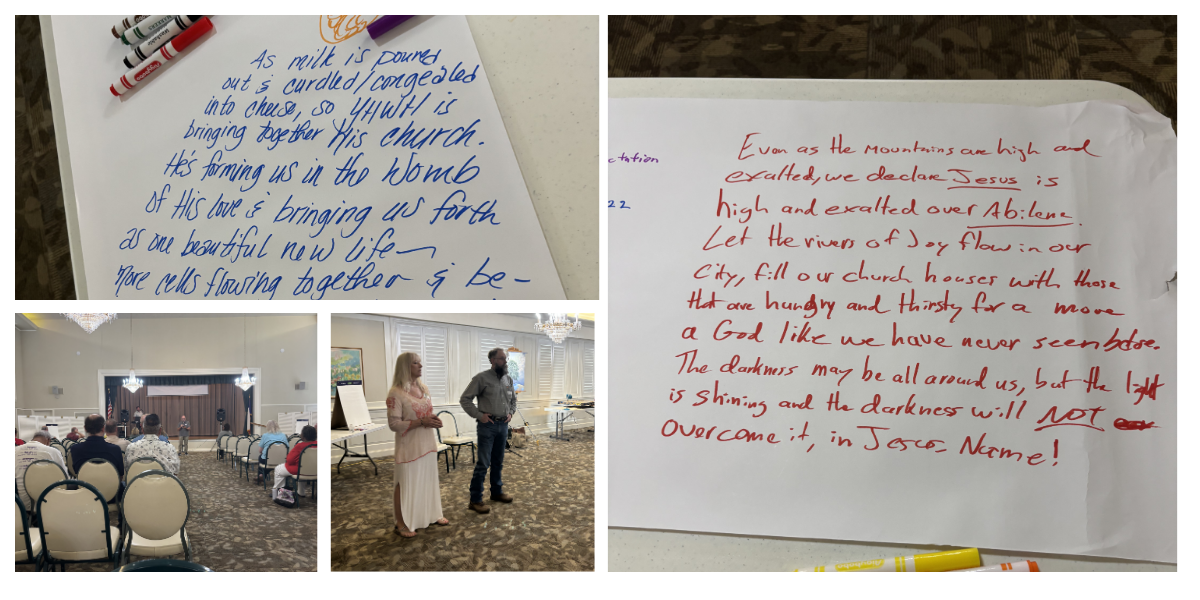 As milk is poured
out & curdled/congealed
into cheese, so YHWH is
bringing together His church.
He's forming us in the womb
of His love & bringing us forth
as one beautiful new life—
more cells flowing together & be-
ctation
22
Even as the Mountains are high and
exalted, we declare Jesus is
high and exalted over Abilene.
Let the rivers of Joy flow in our
City, fill our church houses with those
that are hungry and thirsty for a move
a God like we have never seen before.
The darkness may be all around us, but the light
is shining and the darkness will NOT
overcome it, in Jesus Name!